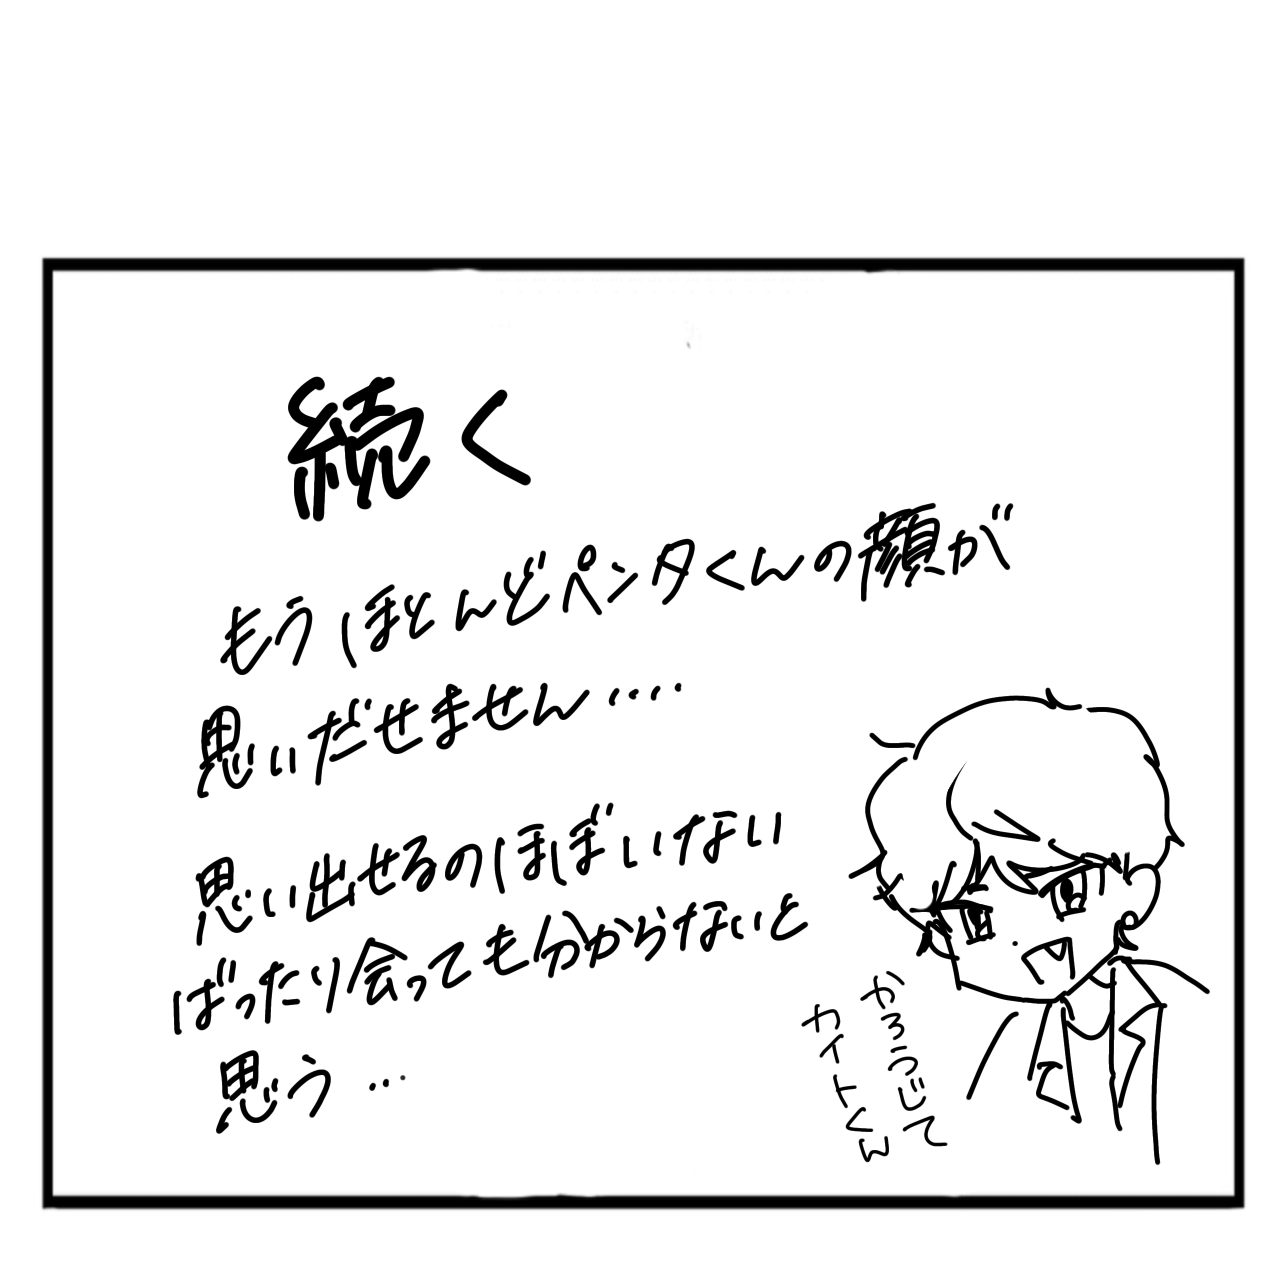 続く
もうほとんどペンタくんの顔が
思いだせません‥‥
思い出せるのほぼいない
ばったり会っても分からないと
思う…
かろうじて
カイトくん